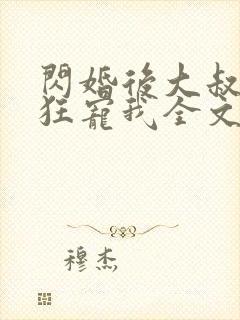 閃婚後大叔
狂寵我全文
穆杰